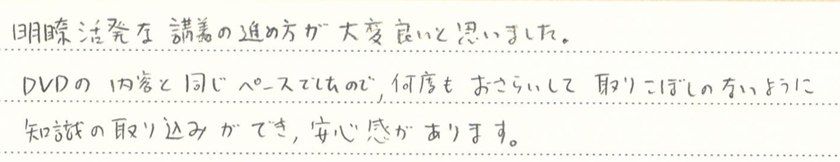 明瞭活発な講義の進め方が大変良いと思いました。
DVDの内容と同じペースでしたので,何度もおさらいして取りこぼしのないように
知識の取り込みができ,安心感があります。